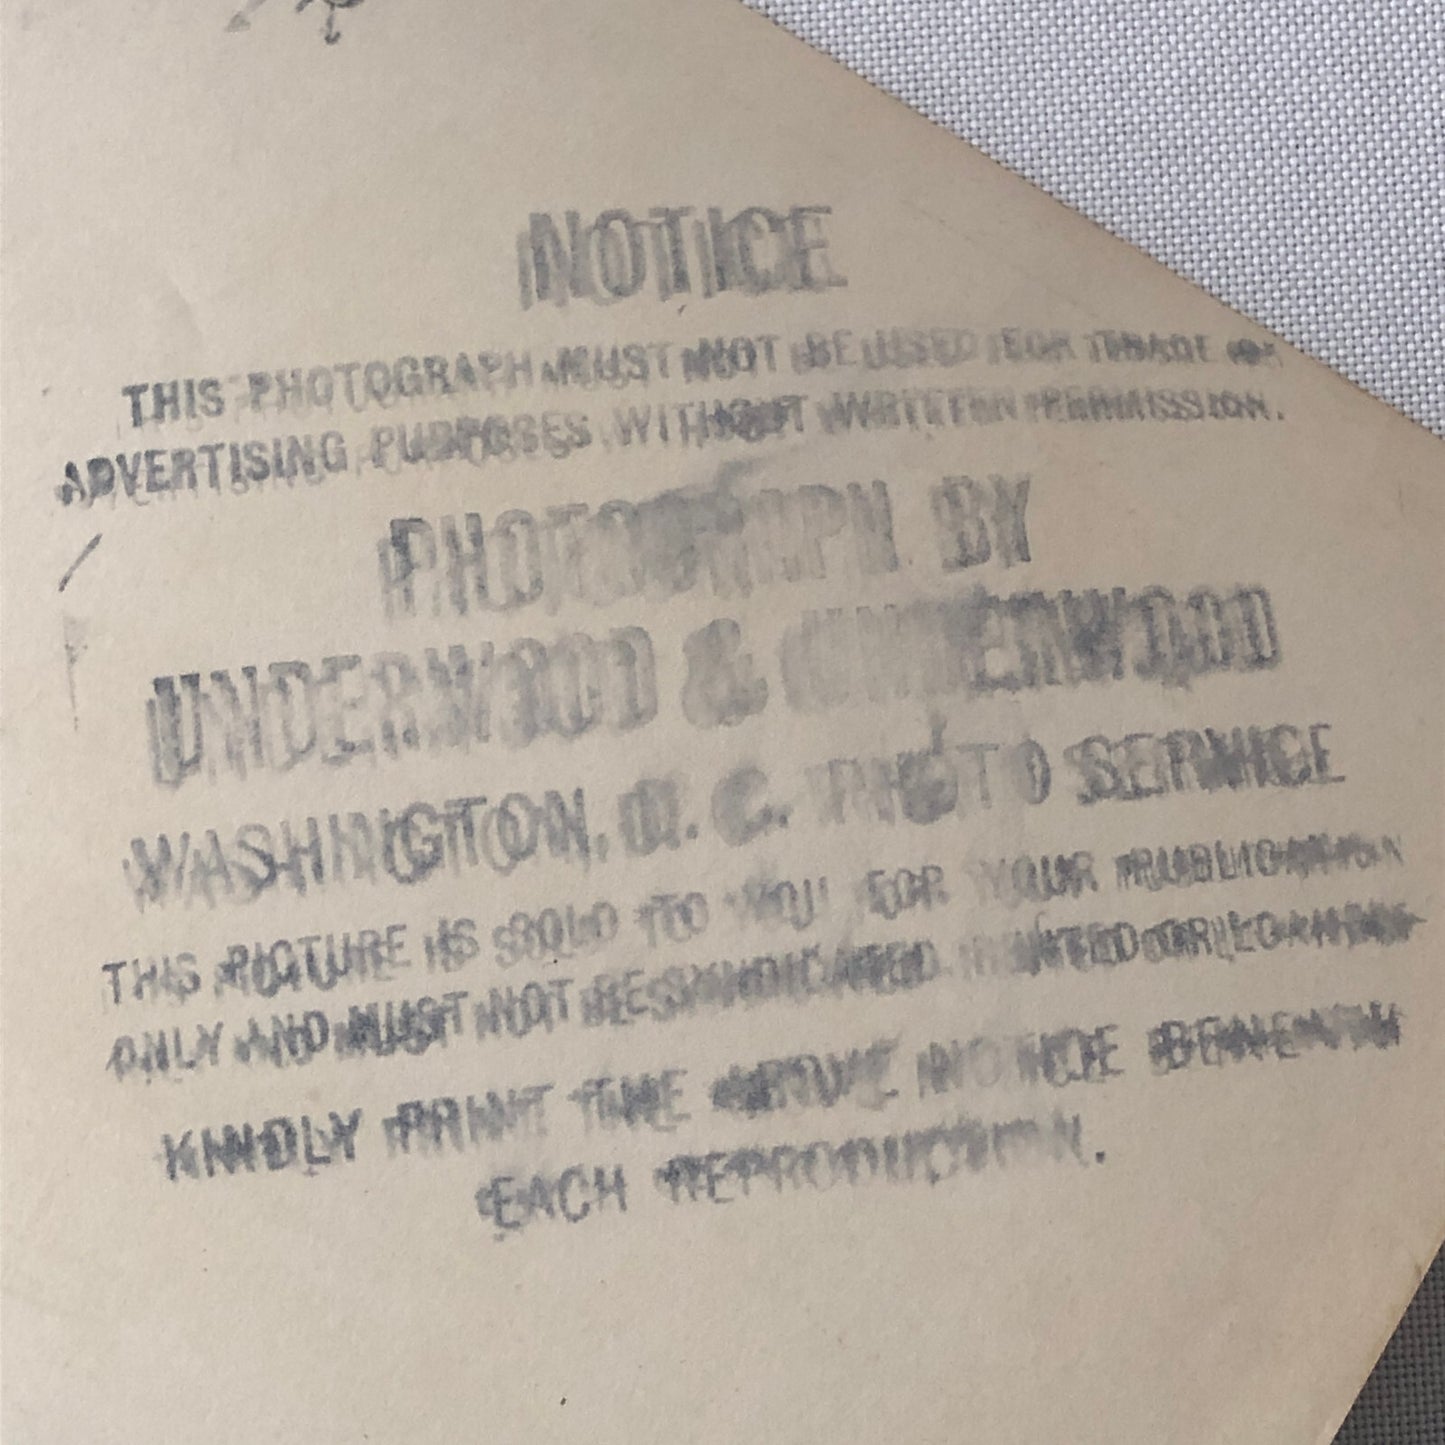 NOTICE
THIS PHOTOGRAPH MUST NOT BE USED FOR TRADE OR
ADVERTISING PURPOSES WITHOUT WRITTEN PERMISSION.
PHOTOGRAPH BY
UNDERWOOD & UNDERWOOD
WASHINGTON, D. C. PHOTO SERVICE
THIS PICTURE IS SOLD TO YOU FOR YOUR PUBLICATION
ONLY AND MUST NOT BE SYNDICATED, RENTED OR LOANED
KINDLY PRINT THE ABOVE NOTICE BENEATH
EACH REPRODUCTION.